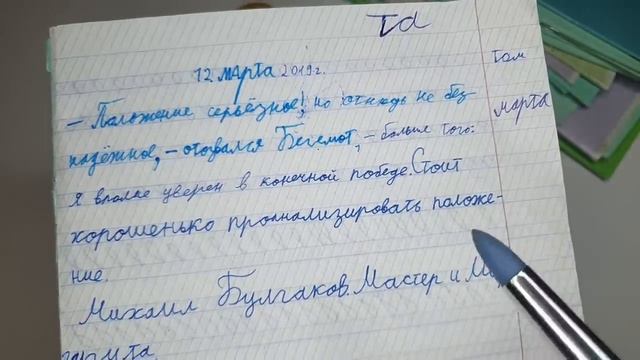 Та
12 марта 2019 г.
там
— Положение серьёзное!, но отнюдь не без-
марта
надёжное, — отозвался Бегемот, — больше того:
я вполне уверен в конечной победе. Стоит
хорошенько проанализировать положе-
ние.
Михаил Булгаков. Мастер и
гарита